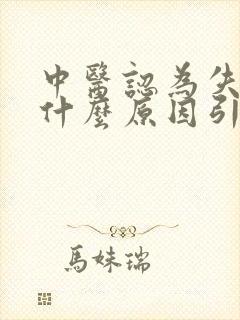 中醫認為失
什麼原因引
馬妹瑞